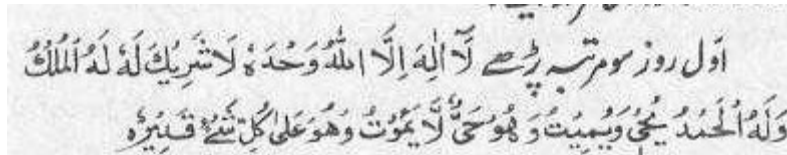 اول روز سو مرتبہ پڑھے لَآ اِلٰهَ اِلَّا اللّٰهُ وَحْدَهٗ لَا شَرِيْكَ لَهٗ لَهُ الْمُلْكُ
وَلَهُ الْحَمْدُ يُحْيٖ وَيُمِيْتُ وَهُوَ حَيٌّ لَّا يَمُوْتُ وَهُوَ عَلٰى كُلِّ شَىْءٍ قَدِيْرٌ ہ